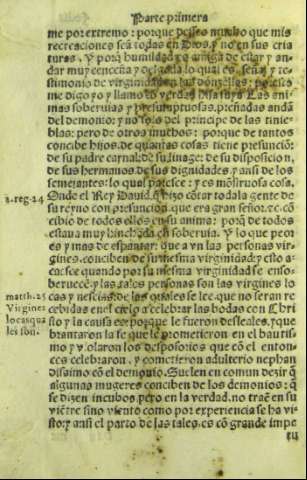 Parte primera
me por extremo: porque desseo mucho que mis
recreaciones seã todas en Dios, y no en sus cria
turas. Y porq̃ humildad es amiga de estar y an
dar muy cenceña y delgada lo qual es señal y tes
timonio de virginidad en las donzellas: por esto
me digo yo y llamo yo verdad Las ani
mas soberuias y presumptuosas, preñadas andã
del demonio: y no solo del principe de las tinie-
blas: pero de otros muchos: porque de tantos
concibe hijos, de quantas cosas tiene presunciõ:
de su padre carnal: de su linage: de su disposicion,
de sus hermanos, de sus dignidades, y ansi de los
semejantes: lo qual paresce: y es mõstruosa cosa.
2.reg.24 Onde el Rey Dauid, q̃ hizo cõtar toda la gente de
su reyno con presuncion que era gran señor. cõ
cibio de todos ellos en su anima: porq̃ de todos
estaua muy hinchada en soberuia. Y lo que peor
es y mas de espantar: que a vn las personas vir-
gines, conciben de su mesma virginidad: y esto a-
caesce quando por su mesma virginidad se enso-
beruecẽ: y las tales personas son las virgines lo
matth.25 cas y nescias: de las quales se lee, que no seran re
Virgines cebidas en el cielo a celebrar las bodas con Chri
locas qua sto y la causa es: porque le fueron desleales, y que
les son. brantaron la fe que le prometieron en el bautis-
mo y violaron los desposorios que cõ el enton-
ces celebraron, y cometieron adulterio nephan
dissimo cõ el demonio. Suelen en comun dezir q̃
algunas mugeres conciben de los demonios: q̃
se dizen incubos, pero en la verdad, no traẽ en su
viẽtre sino viento como por experiencia se ha vi-
sto: y ansi el parto de las tales, es cõ grande impe